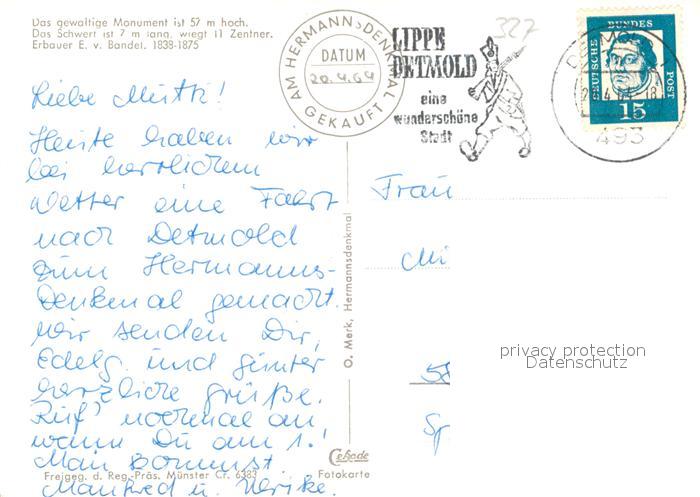 Das gewaltige Monument ist 57 m hoch.
Das Schwert ist 7 m lang, wiegt 11 Zentner.
Erbauer E. v. Bandel. 1838-1875
AM HERMANNSDENKMAL
DATUM
20.4.64
GEKAUFT
LIPPE
DETMOLD
eine
wunderschöne
Stadt
327
DEUTSCHE BUNDESPOST
15
493
Liebe Mutti!
Heute haben wir
bei herrlichem
Wetter eine Fahrt
nach Detmold
zum Hermanns-
denkmal gemacht.
Wir senden Dir,
Edelg. und Günter
herzliche Grüße.
Ruf nochmal an,
wann Du am 1.
Mai kommst
Manfred u. Ulrike.
Frau
O. Merk, Hermannsdenkmal
privacy protection
Datenschutz
Cekade
Fotokarte
Freigeg. d. Reg.-Präs. Münster Cr. 6383